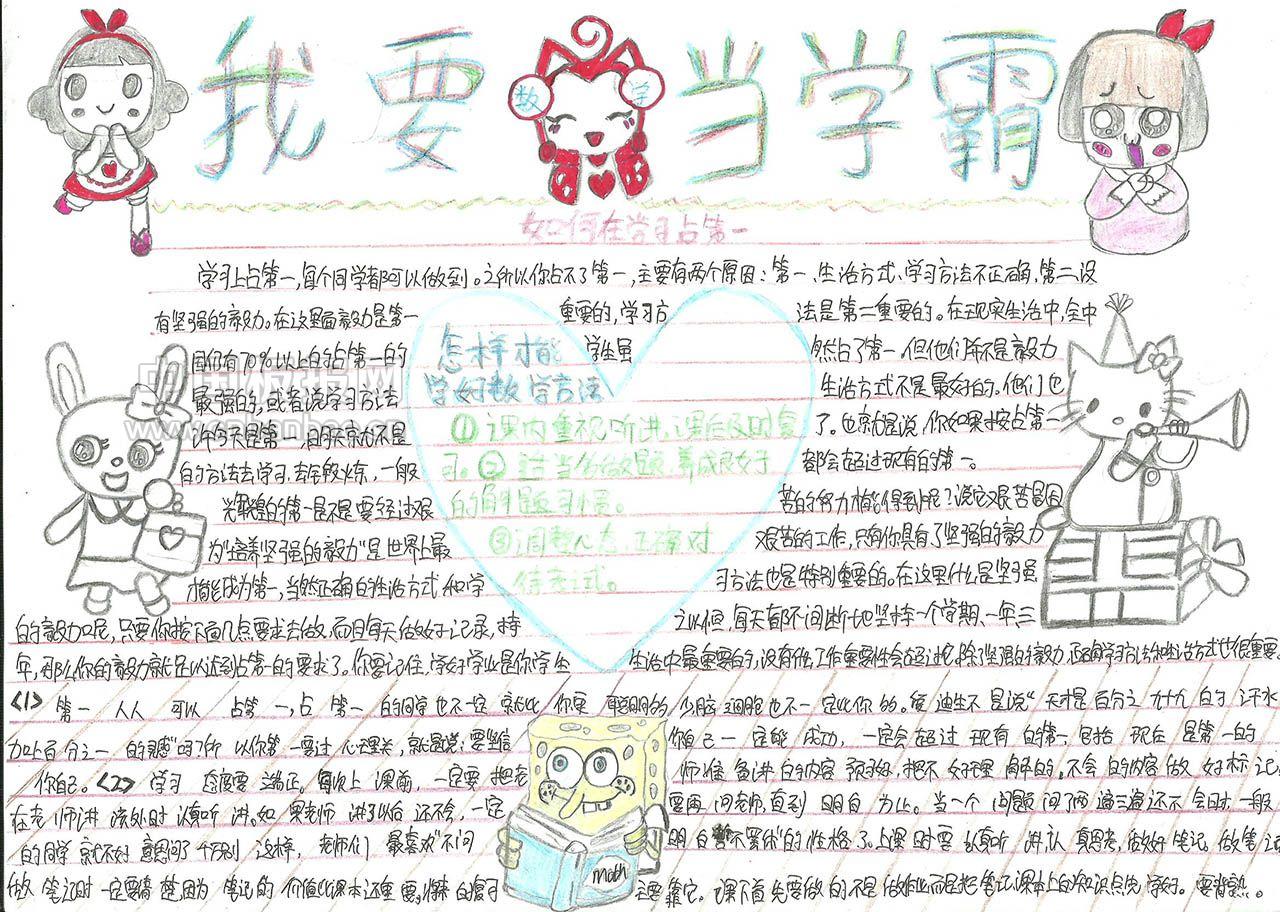 我要当学霸
数学
如何在学习占第一
学习上占第一,每个同学都可以做到。之所以你占不了第一,主要有两个原因:第一、生活方式、学习方法不正确,第二、没
有坚强的毅力。在这里面毅力是第一 重要的,学习方 法是第二重要的。在现实生活中,全中
国仍有70%以上的占第一的 学生虽 然占了第一,但他们并不是毅力
最强的,或者说学习方法 生活方式不是最好的。他们也
许今天是第一,明天就不是 了。也就是说,你如果按占第一
的方法去学习,去学,一般 都会超过现有的第一。
的第一是不是要经过艰 苦的努力才能得到呢?说它艰苦是因
为“培养坚强的毅力”是世界上最 艰苦的工作,只有你具有了坚强的毅力
才能成为第一,当然正确的生活方式和学 习方法也是特别重要的。在这里什么是坚强
的毅力呢,只要你按下面几点要求去做,而且每天做好记录,持 之以恒,每天都不间断地坚持一个学期、一年、三
年,那么你的毅力就足以达到占第一的要求了。你要记住,学好学业是你学生 生活中最重要的,没有任何工作重要性会超过它,除了坚强的毅力,正确的学习方法和生活方式也很重要。
怎样才能
学好数学方法
①课内重视听讲,课后及时复
习。②适当多做题,养成良好
的解题习惯。
③调整心态,正确对
待考试。
<1> 第一 人人 可以 占第一,占 第一 的同学也不一定 就比 你更 聪明的 大脑细胞也不一定比你的。爱迪生不是说“天才是百分之九十九的汗水
加上百分之一的灵感”吗?所以你第一要过心理关,就是说:要坚信 你自己一定能成功,一定会超过现有的第一,包括现在是第一的
你自己。<2> 学习态度要端正。每次上课前,一定要把老 师准备讲的内容预习好,把不好理解的、不会的内容做好标记,
在老师讲该处时认真听讲。如果老师讲了以后还不会,一定 要再问老师,直到明白为止。当一个问题问了两遍三遍还不会时,一般
的同学就不好意思问了,千万别这样,老师们最喜欢“不问 明白誓不罢休”的性格了。上课时要认真听讲,认真思考,做好笔记。做笔记
做笔记时一定要清楚,因为笔记的价值比课本还重要,将来的复习 主要靠它。课下首先要做的不是做作业而是把笔记、课本上的知识点先学好。要背熟。
math
中国板报网